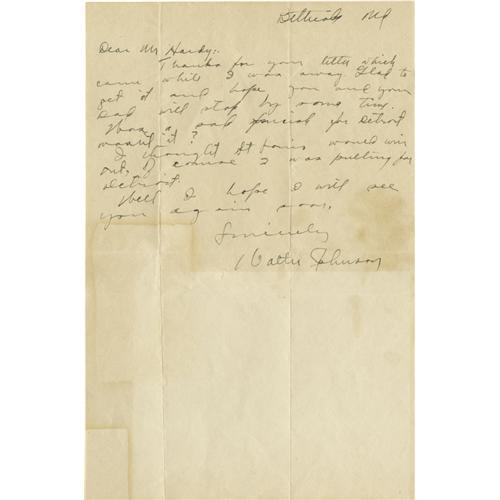 Bethesda Md
Dear Mr Hardy:
Thanks for your letter which
came while I was away. Glad to
get it and hope you and your
Dad will stop by some time.
That was a sad for Detroit
wasn't it?
I thought St Louis would win
out, of course I was pulling for
Detroit.
Well I hope I will see
you again soon.
Sincerely
Walter Johnson